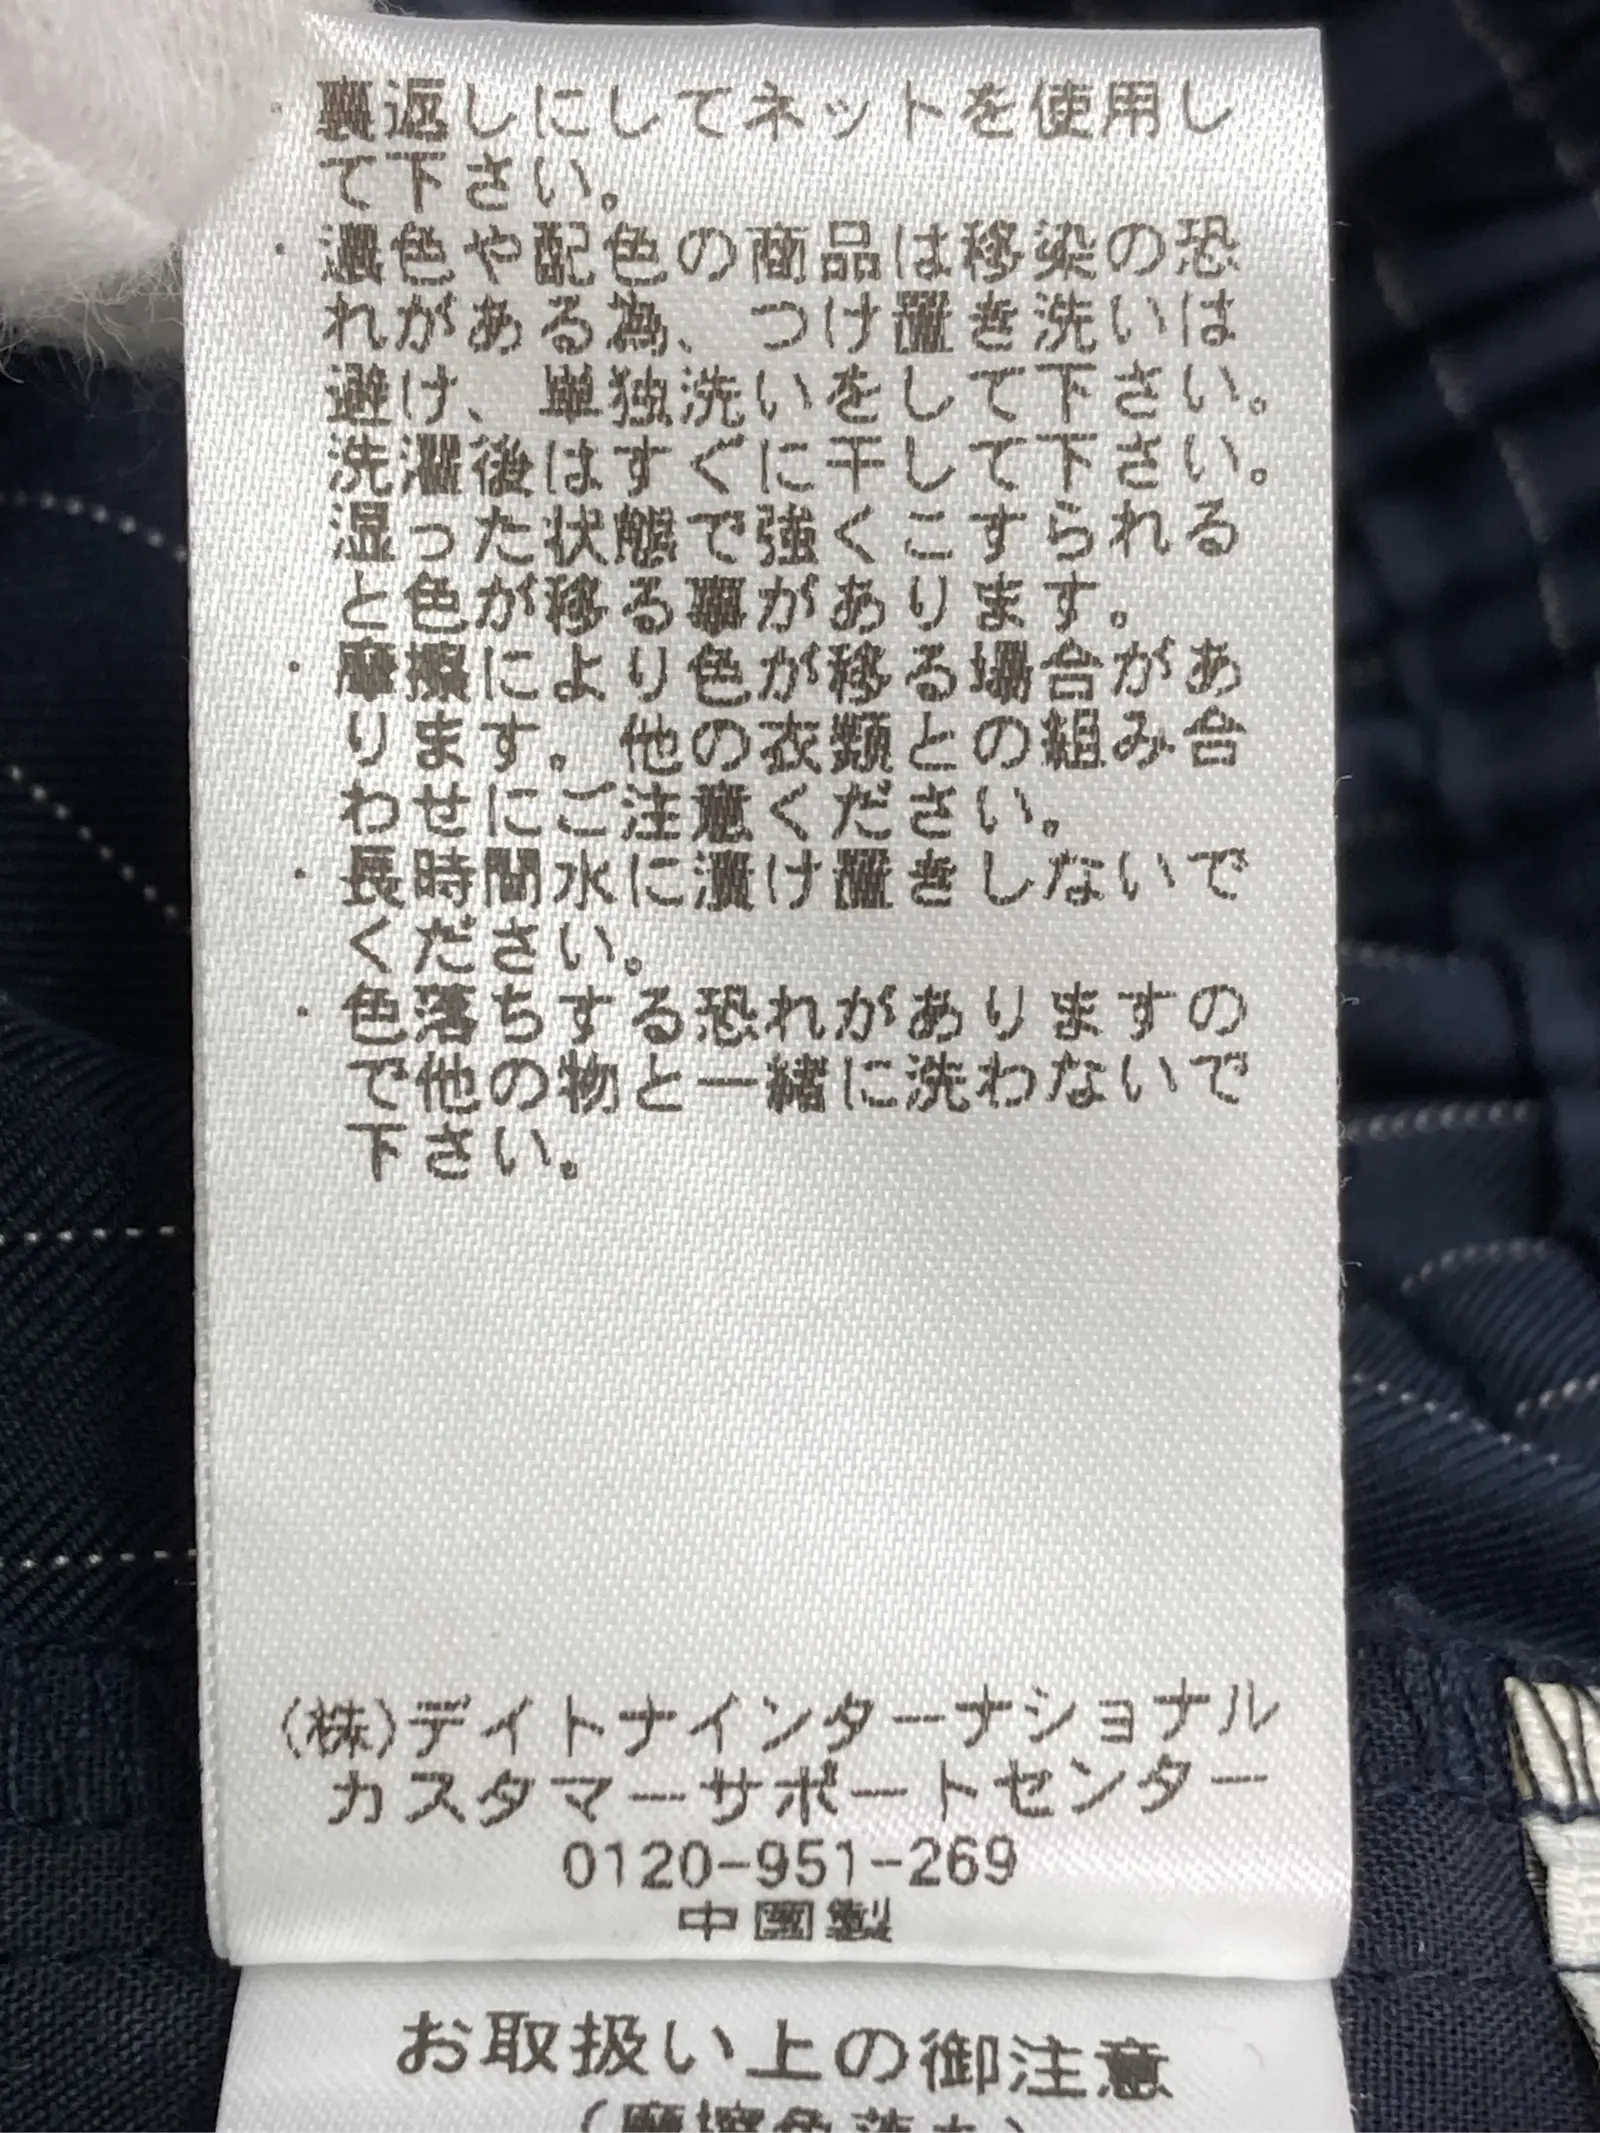 ・裏返しにしてネットを使用し
て下さい。
・濃色や配色の商品は移染の恐
れがある為、つけ置き洗いは
避け、単独洗いをして下さい。
洗濯後はすぐに干して下さい。
湿った状態で強くこすられる
と色が移る事があります。
・摩擦により色が移る場合があ
ります。他の衣類との組み合
わせにご注意ください。
・長時間水に漬け置きしないで
ください。
・色落ちする恐れがありますの
で他の物と一緒に洗わないで
下さい。
(株)デイトナインターナショナル
カスタマーサポートセンター
0120-951-269
中国製
お取扱い上の御注意
(摩擦色落ち)